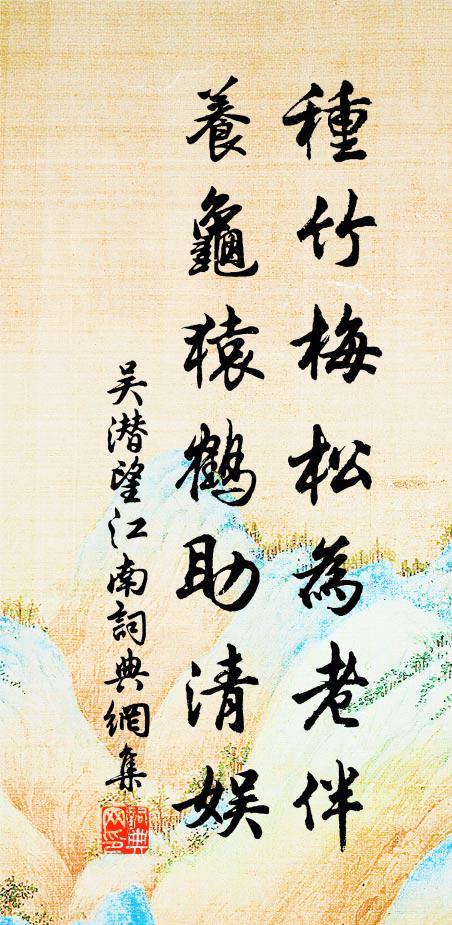 種竹梅松為老伴
養龜猿鶴助清娛
吴潜望江南詞典網集
詞典
网印